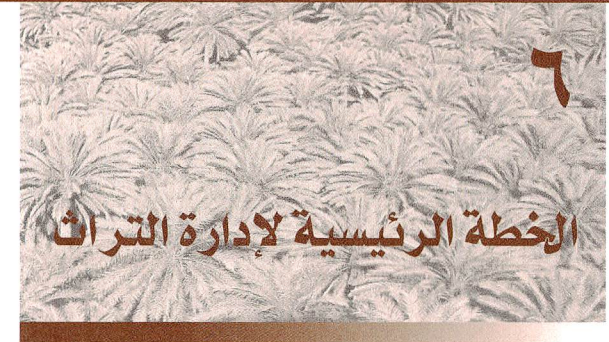 ٦
الخطة الرئيسية لإدارة التراث